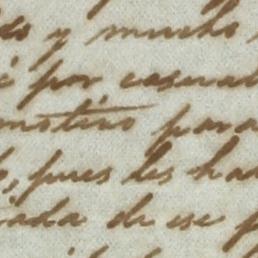 y mucho
por casual
motivo para
, pues les ha
iada de ese p